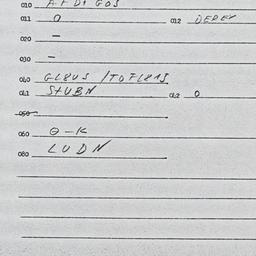 010 AFDIGOS
011 0 012 DEPEY
020 -
030 -
040 GL8US /TOFL8MS
041 StUBN 042 0
050
060 0-K
080 LUDN